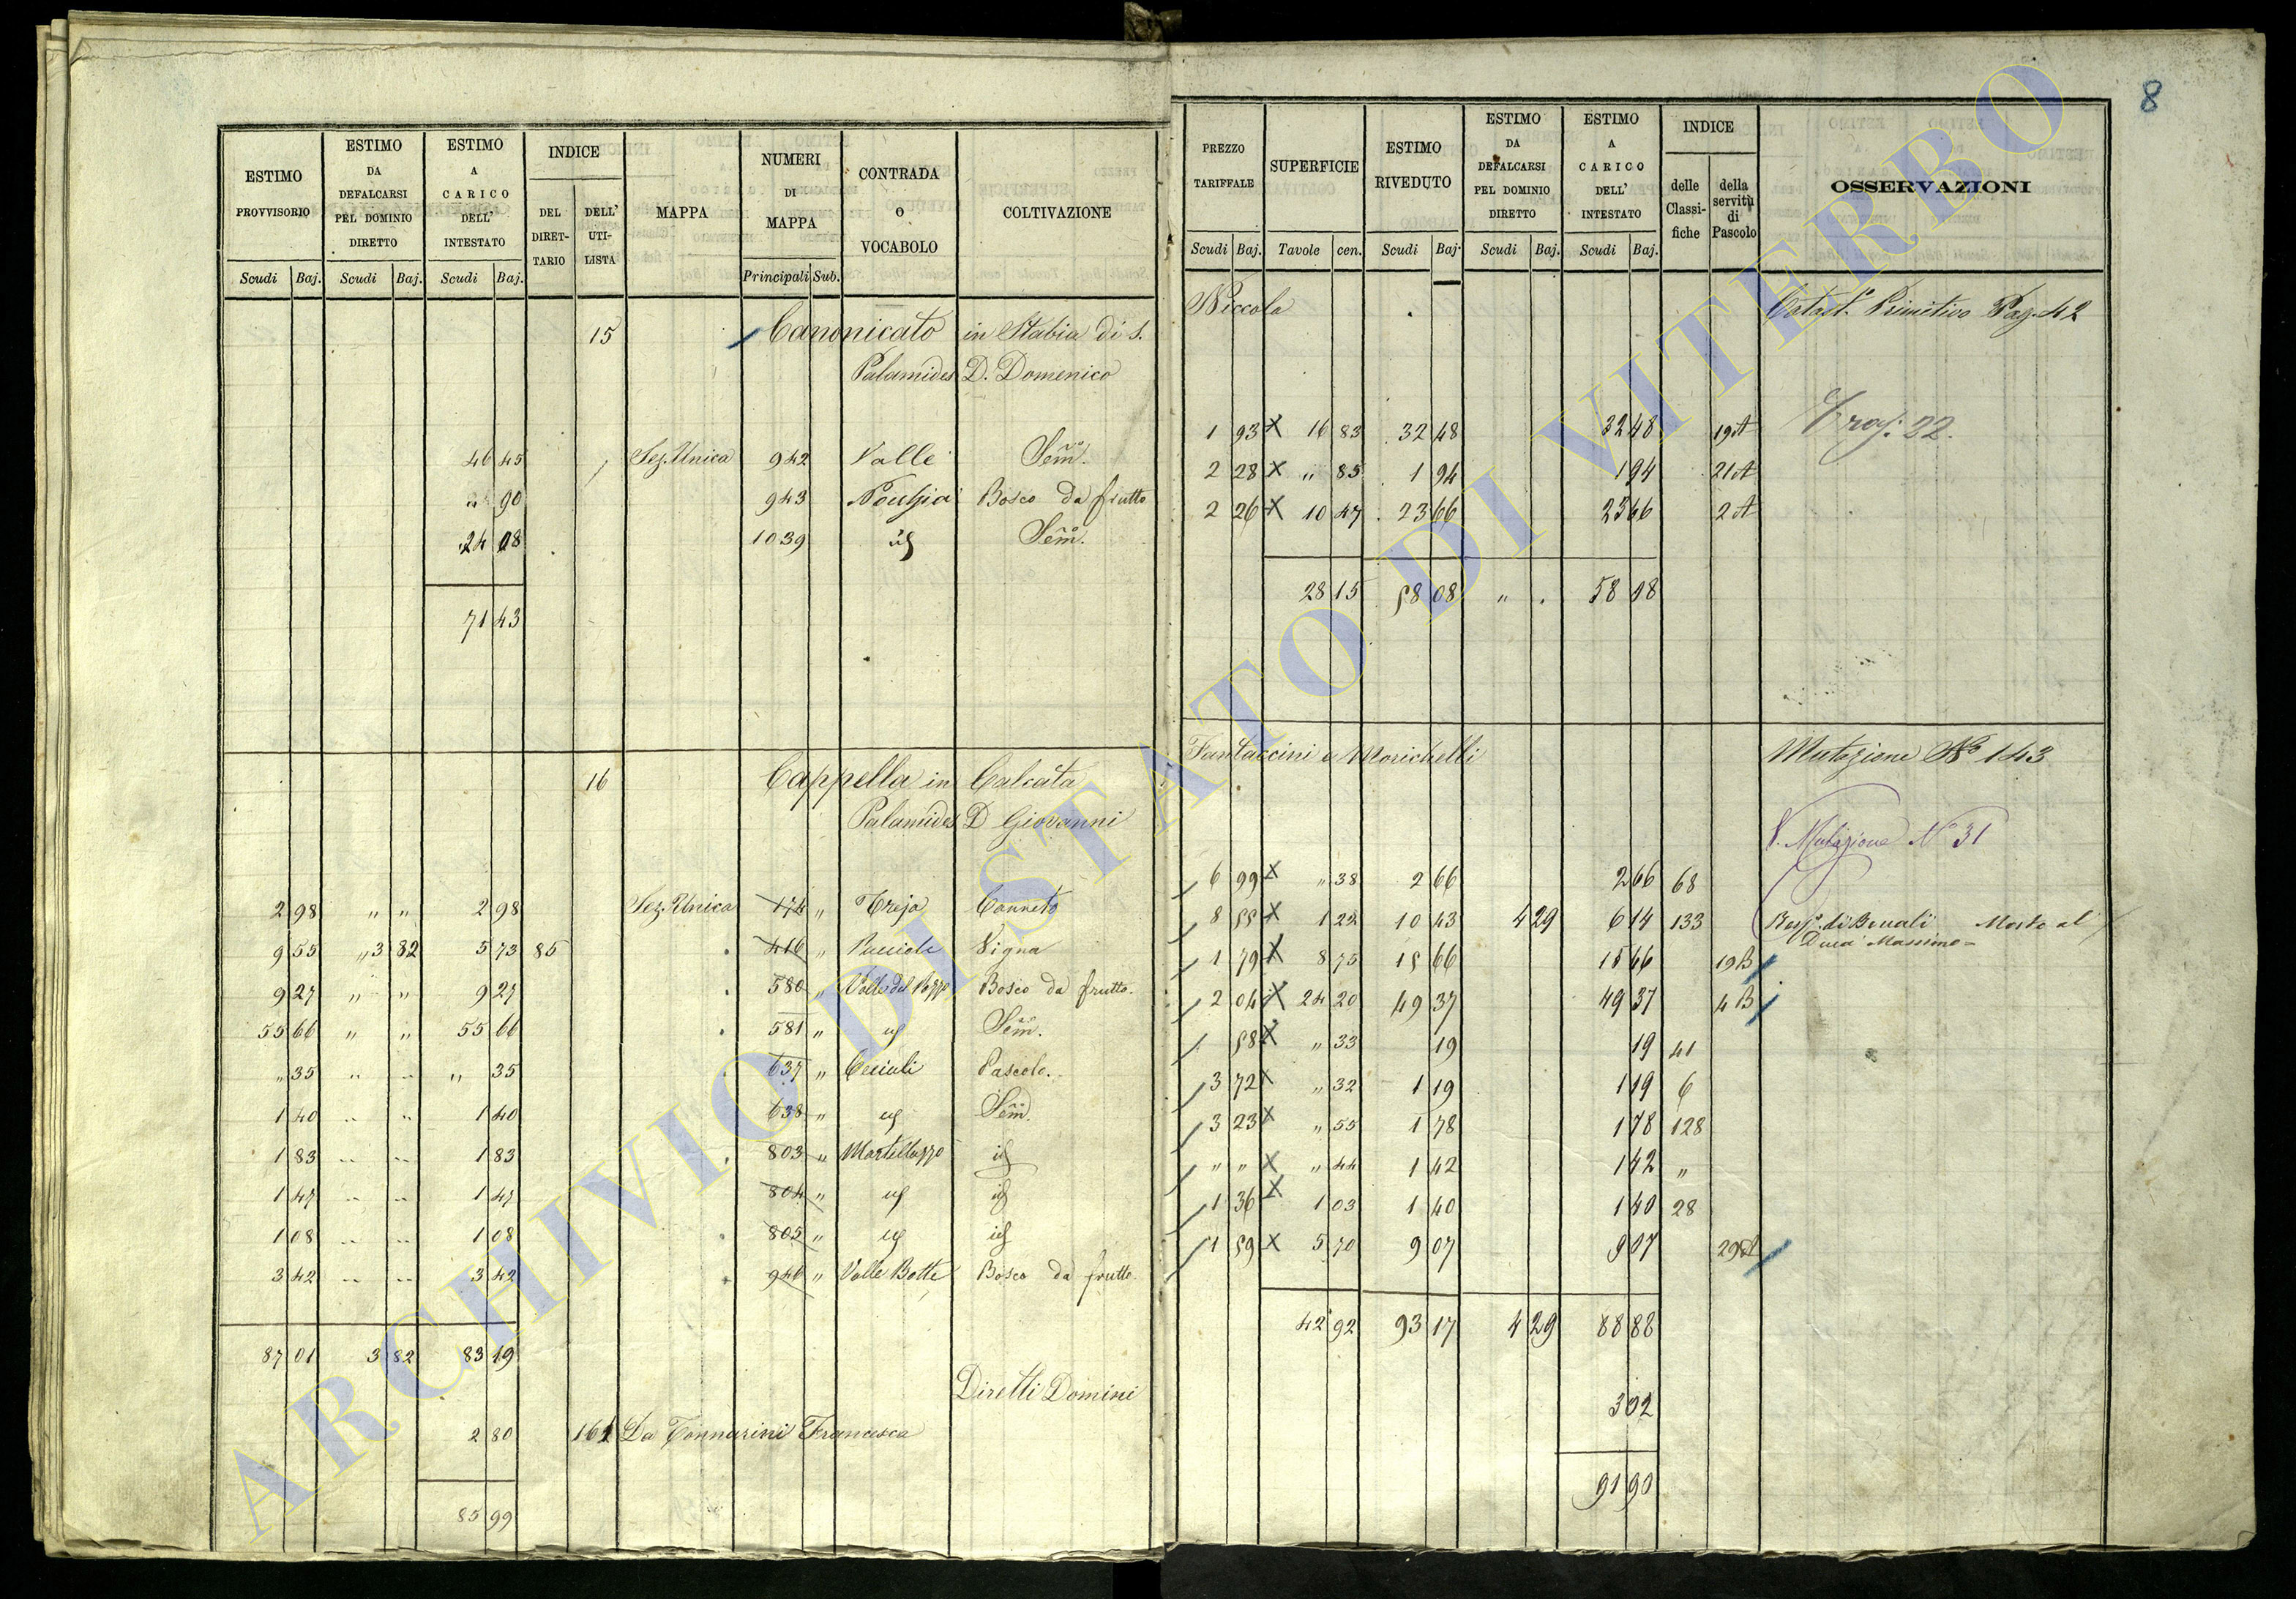 8
ESTIMO PROVVISORIO | ESTIMO DA DEFALCARSI PEL DOMINIO DIRETTO | ESTIMO A CARICO DELL' INTESTATO | INDICE | DEL DIRETTARIO | DELL' UTILISTA | MAPPA | NUMERI DI MAPPA | CONTRADA O VOCABOLO | COLTIVAZIONE
Scudi Baj. | Scudi Baj. | Scudi Baj. | Principali Sub.
PREZZO TARIFFALE | SUPERFICIE | ESTIMO RIVEDUTO | ESTIMO DA DEFALCARSI PEL DOMINIO DIRETTO | ESTIMO A CARICO DELL' INTESTATO | INDICE | delle Classifiche | della servitù di Pascolo | OSSERVAZIONI
Scudi Baj. | Tavole cen. | Scudi Baj. | Scudi Baj. | Scudi Baj.
15 Canonicato in Stabia di S. Niccola Catast.° Primitivo Pag. 42
Palamides D. Domenico
46 45 Sez. Unica 942 Valle Sem.° 1 93 x 16 83 32 48 32 48 19 A
" 90 943 Bosco da frutto 2 28 x " 85 1 94 1 94 21 A
24 08 1039 id Sem.° 2 26 x 10 47 23 66 23 66 2 A
71 43 28 15 58 08 " 58 08
16 Cappella in Calcata Fantaccini e Morichelli Mutazione N° 143
Palamides D Giovanni V. Mutazione N° 31
2 98 " " 2 98 Sez. Unica 174 " Treja Canneto 6 99 x " 38 2 66 2 66 68
9 55 " 3 82 5 73 85 416 " Vigna 8 55 x 1 22 10 43 4 29 6 14 133
Duca Massimo
9 27 " " 9 27 580 " Valle del Pozzo Bosco da frutto 1 79 x 8 75 15 66 15 66 19 B
55 66 " " 55 66 581 " id Sem.° 2 04 x 24 20 49 37 49 37 4 B
" 35 " " " 35 637 " Pascolo 58 x " 33 19 19 41
1 40 " " 1 40 638 " id Sem.° 3 72 x " 32 1 19 1 19 6
1 83 " " 1 83 803 " Martellazzo id 3 23 x " 55 1 78 1 78 128
1 47 " " 1 47 804 " id id " " x " 44 1 42 1 42 "
1 08 " " 1 08 805 " id id 1 36 x 1 03 1 40 1 40 28
3 42 " " 3 42 946 " Valle Botte Bosco da frutto 1 59 x 5 70 9 07 9 07 29 A
87 01 3 82 83 19 42 92 93 17 4 29 88 88
Diretti Domini
2 80 161 Da Tonnarini Francesca 3 02
85 99 91 90
ARCHIVIO DI STATO DI VITERBO